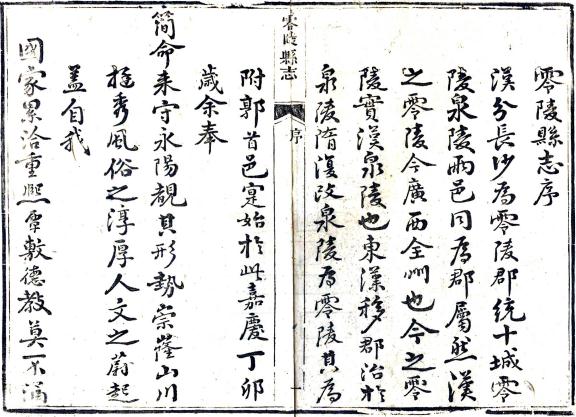 零陵縣志序
漢分長沙為零陵郡統十城零
陵泉陵兩邑同為郡屬然漢
之零陵今廣西全州也今之零
陵實漢泉陵也東漢移郡治於
泉陵隋復改泉陵為零陵其為
零陵縣志
序
附郭首邑寔始於此嘉慶丁卯
歲余奉
簡命來守永陽觀其形勢崇隆山川
挺秀風俗之淳厚人文之蔚起
蓋自我
國家累洽重熙覃敷德教莫不涵